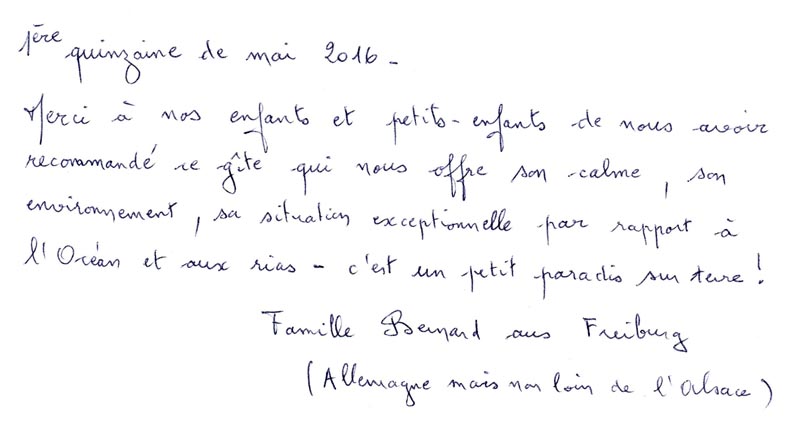 1ère quinzaine de mai 2016 -
Merci à nos enfants et petits-enfants de nous avoir
recommandé ce gîte qui nous offre son calme, son
environnement, sa situation exceptionnelle par rapport à
l'Océan et aux rias - c'est un petit paradis sur terre !
Famille Bernard aus Freiburg
(Allemagne mais non loin de l'Alsace)